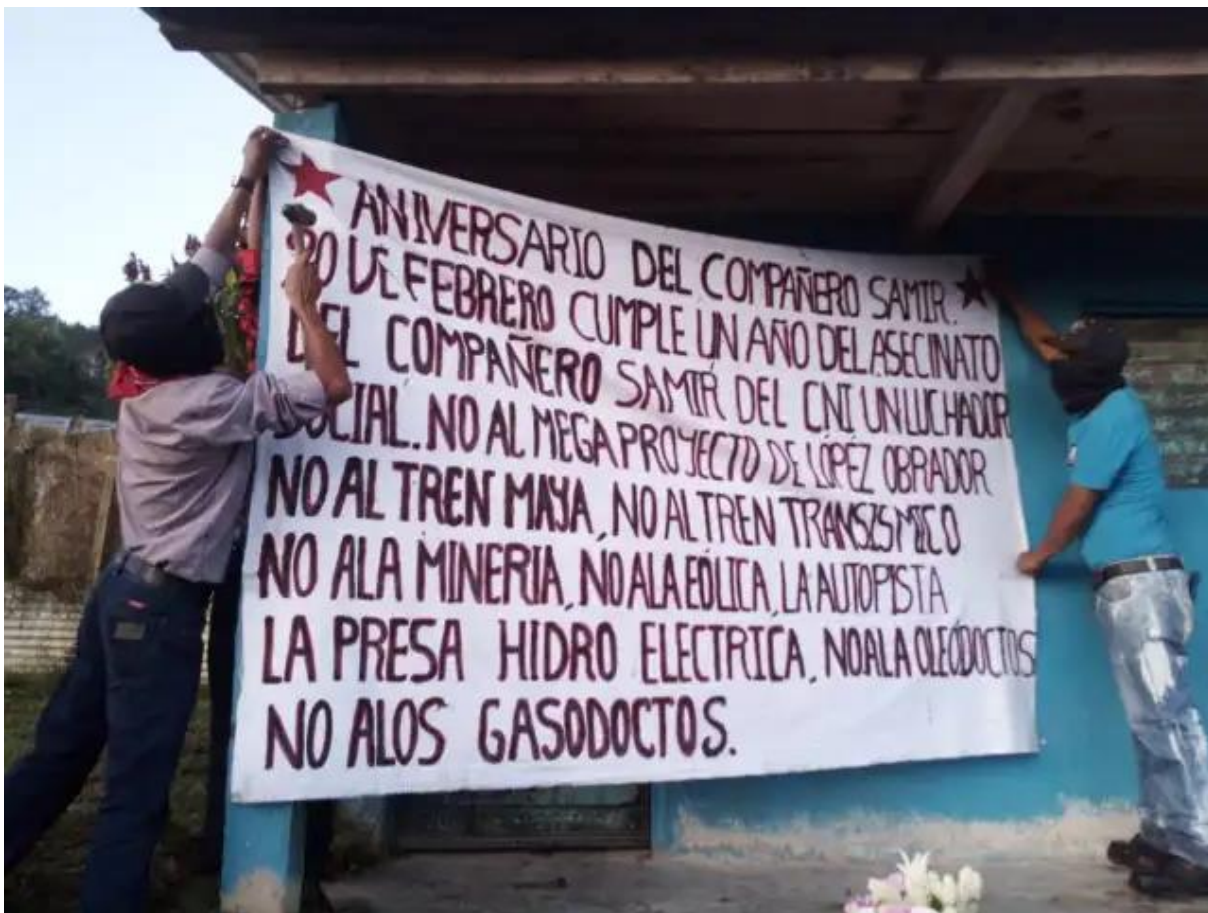 ANIVERSARIO DEL COMPAÑERO SAMIR.
20 DE FEBRERO CUMPLE UN AÑO DEL ASECINATO
DEL COMPAÑERO SAMIR DEL CNI UN LUCHADOR
SOCIAL. NO AL MEGA PROYECTO DE LÓPEZ OBRADOR
NO AL TREN MAYA, NO AL TREN TRANSISMICO
NO ALA MINERIA, NO ALA EÓLICA, LA AUTOPISTA
LA PRESA HIDRO ELECTRICA, NO ALA OLEÓDOCTOS
NO ALOS GASODOCTOS.